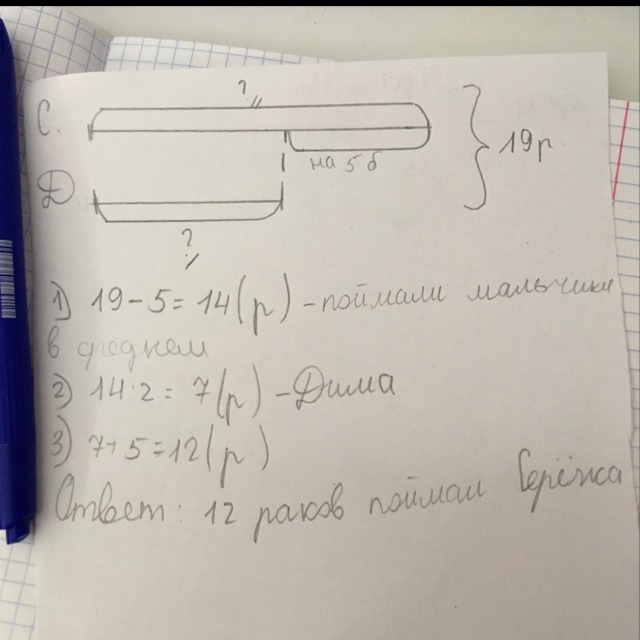 ?
С.
на 5 б
19 р
Д
?
1) 19 - 5 = 14 (р) - поймали мальчики
в среднем
2) 14 : 2 = 7 (р) - Дима
3) 7 + 5 = 12 (р)
Ответ: 12 раков поймал Серёжа